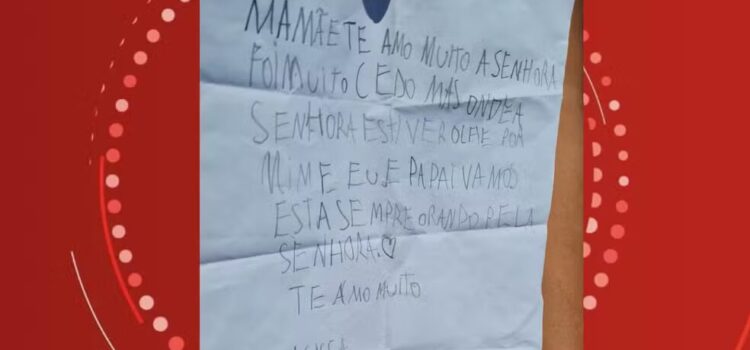 MAMÃE TE AMO MUITO A SENHORA
FOI MUITO CEDO MAS ONDE A
SENHORA ESTIVER OLHE POR
MIM E EU E PAPAI VAMOS
ESTA SEMPRE ORANDO PELA
SENHORA.♡
TE AMO MUITO